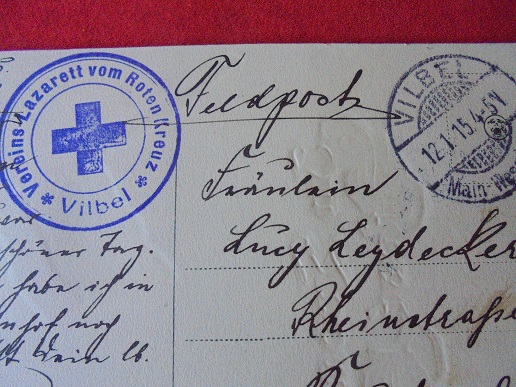 Vereins-Lazarett vom Roten Kreuz
* Vilbel *
Feldpost
VILBEL
12.1.15.4-5N
Main-Wes
Fräulein
Lucy Leydecker
Rheinstraße
schöner Tag.
habe ich in
noch
dein lb.